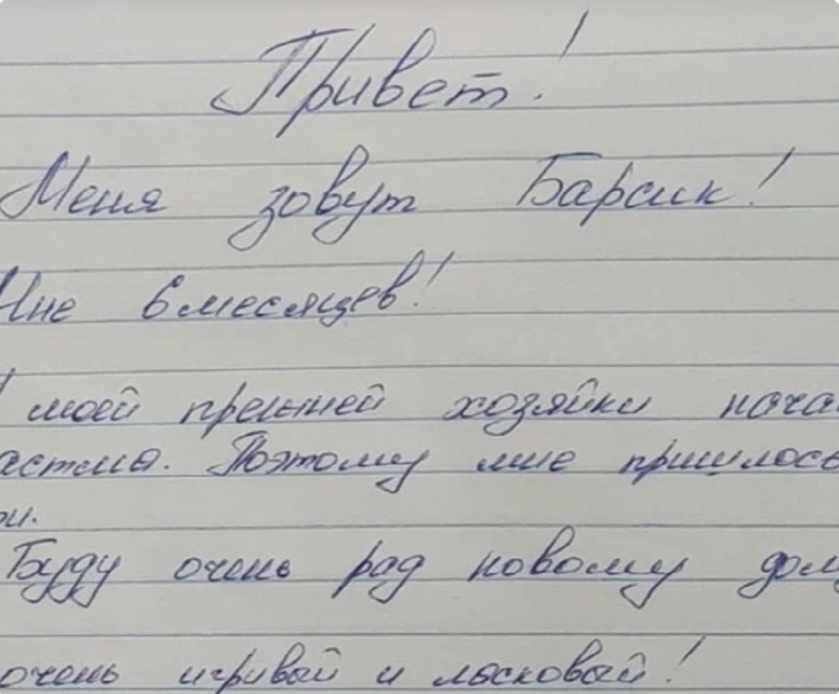 Привет!
Меня зовут Барсик!
Мне 6 месяцев!
моей прежней хозяйки
астма. Поэтому мне пришлось
Буду очень рад новому дому
очень игривый и ласковый!